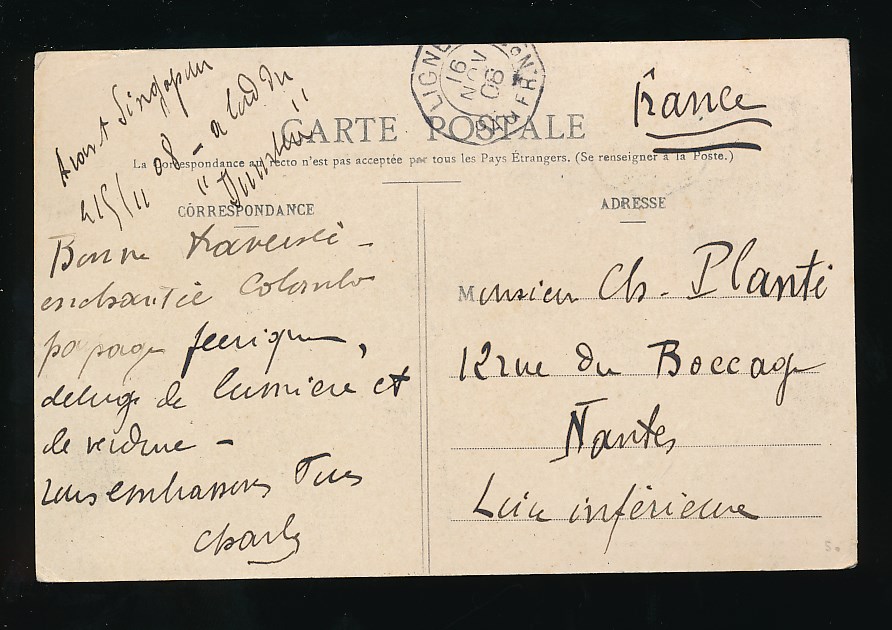 Avant Singapour
/11 08 - a bord du
"Dumbea"
LIGNE
16
NOV
08
PAQ. FR.
France
CARTE POSTALE
La Correspondance au recto n'est pas acceptée par tous les Pays Étrangers. (Se renseigner à la Poste.)
CORRESPONDANCE
Bonne traversée -
enchantée Colombo
paysage feerique,
deluge de lumiere et
de verdure -
vous embrassons Tous
Charly
ADRESSE
Monsieur Ch. Planté
12 rue du Boccage
Nantes
Loire inférieure